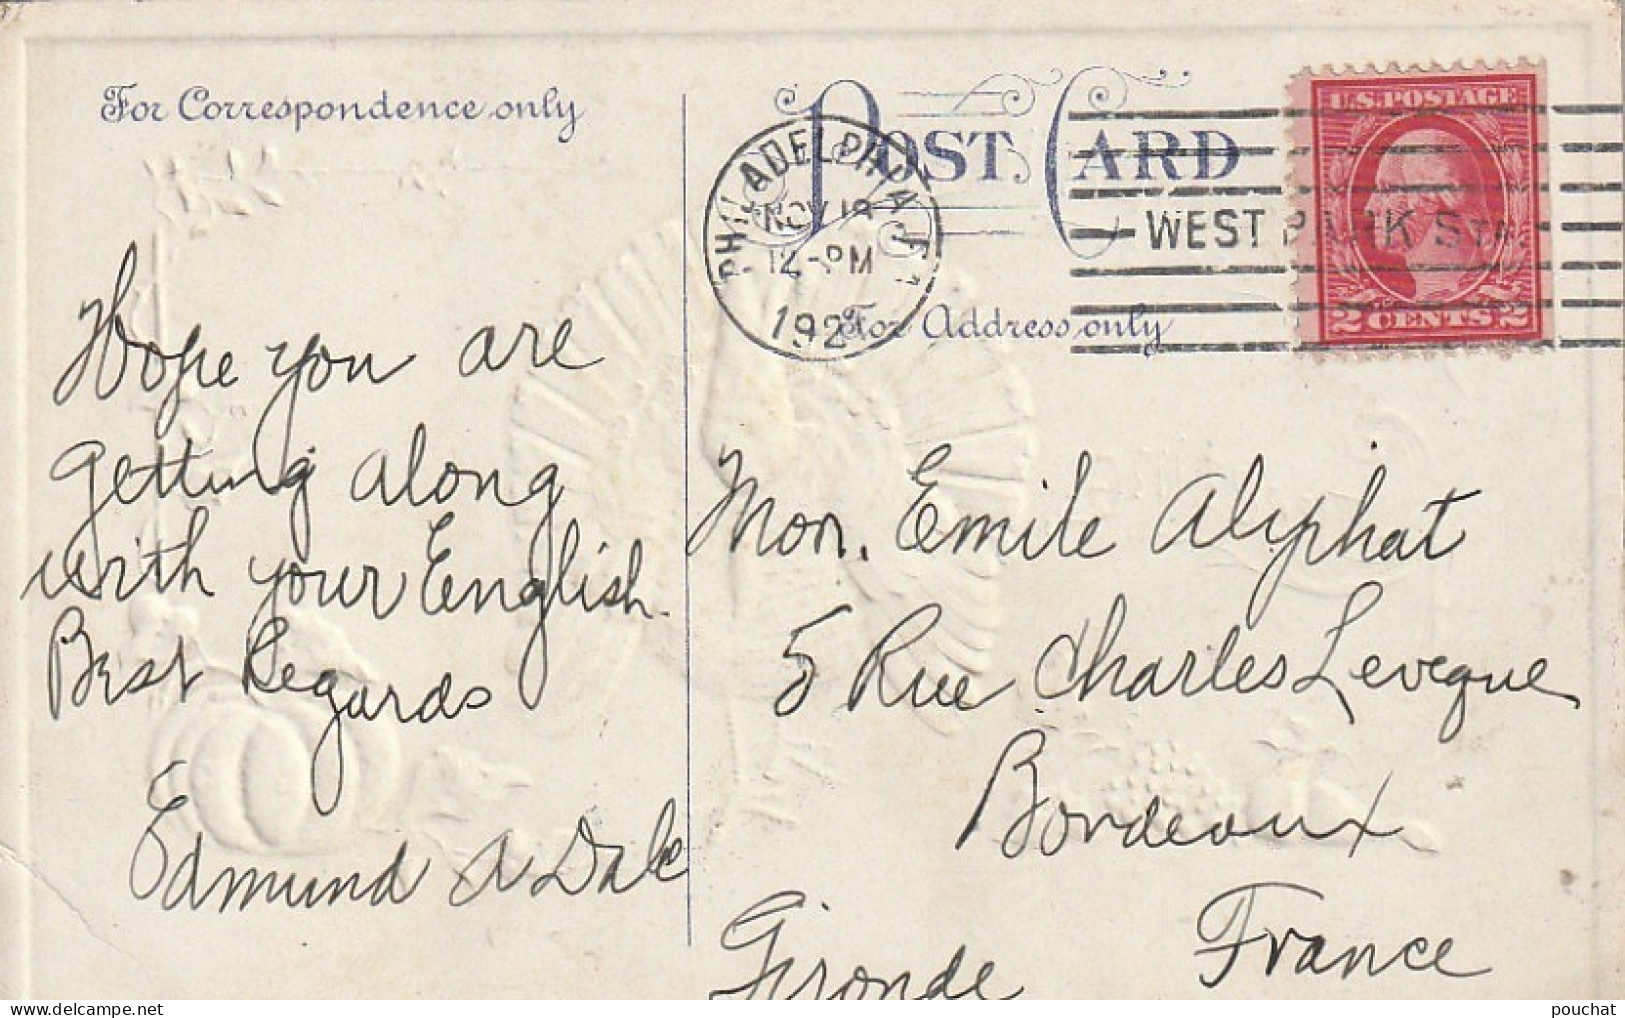 For Correspondence only
POST CARD
For Address only
PHILADELPHIA
NOV 19
12-PM
192
WEST PARK STA.
U.S. POSTAGE
2 CENTS 2
Hope you are
getting along
with your English.
Best Regards
Edmund A Dale
Mon. Emile Aliphat
5 Rue Charles Leveque
Bordeaux
Gironde France
pouchat